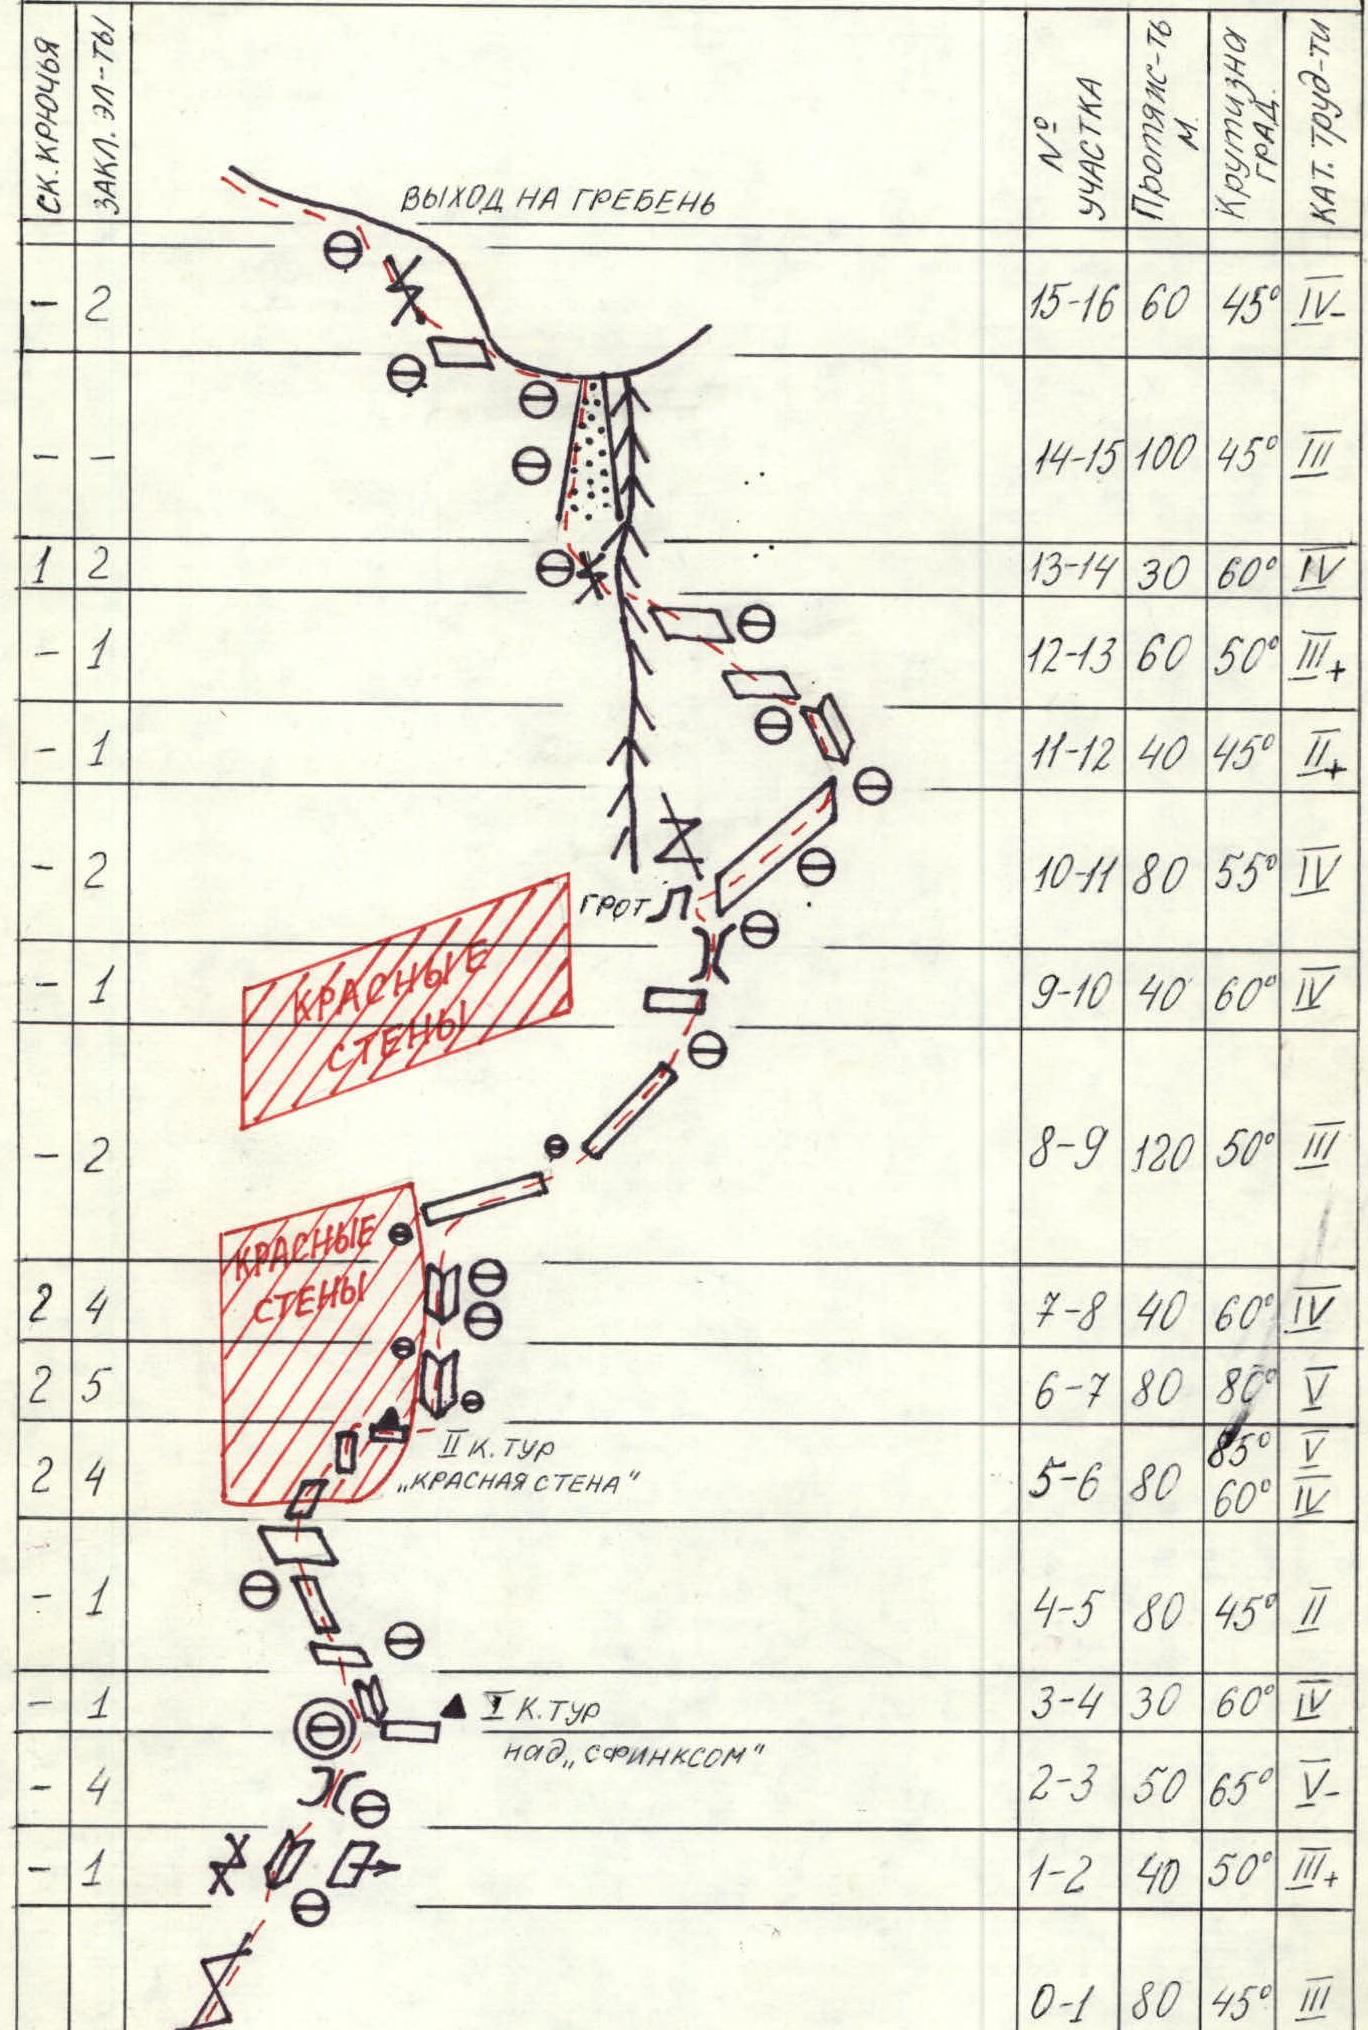 СК. КРЮЧЬЯ
ЗАКЛ. ЭЛ-ТЫ
№ УЧАСТКА
Протяж-ть м.
Крутизна ГРАД.
КАТ. ТРУД-ТИ
ВЫХОД НА ГРЕБЕНЬ
1 2 15-16 60 45° IV-
- - 14-15 100 45° III
1 2 13-14 30 60° IV
- 1 12-13 60 50° III+
- 1 11-12 40 45° II+
- 2 10-11 80 55° IV
ГРОТ
КРАСНЫЕ
СТЕНЫ
- 1 9-10 40 60° IV
- 2 8-9 120 50° III
КРАСНЫЕ
СТЕНЫ
2 4 7-8 40 60° IV
2 5 6-7 80 80° V
II К. ТУР
„КРАСНАЯ СТЕНА"
2 4 5-6 80 85° V
60° IV
- 1 4-5 80 45° II
- 1 3-4 30 60° IV
I К. ТУР
НАД „СФИНКСОМ"
- 4 2-3 50 65° V-
- 1 1-2 40 50° III+
0-1 80 45° III